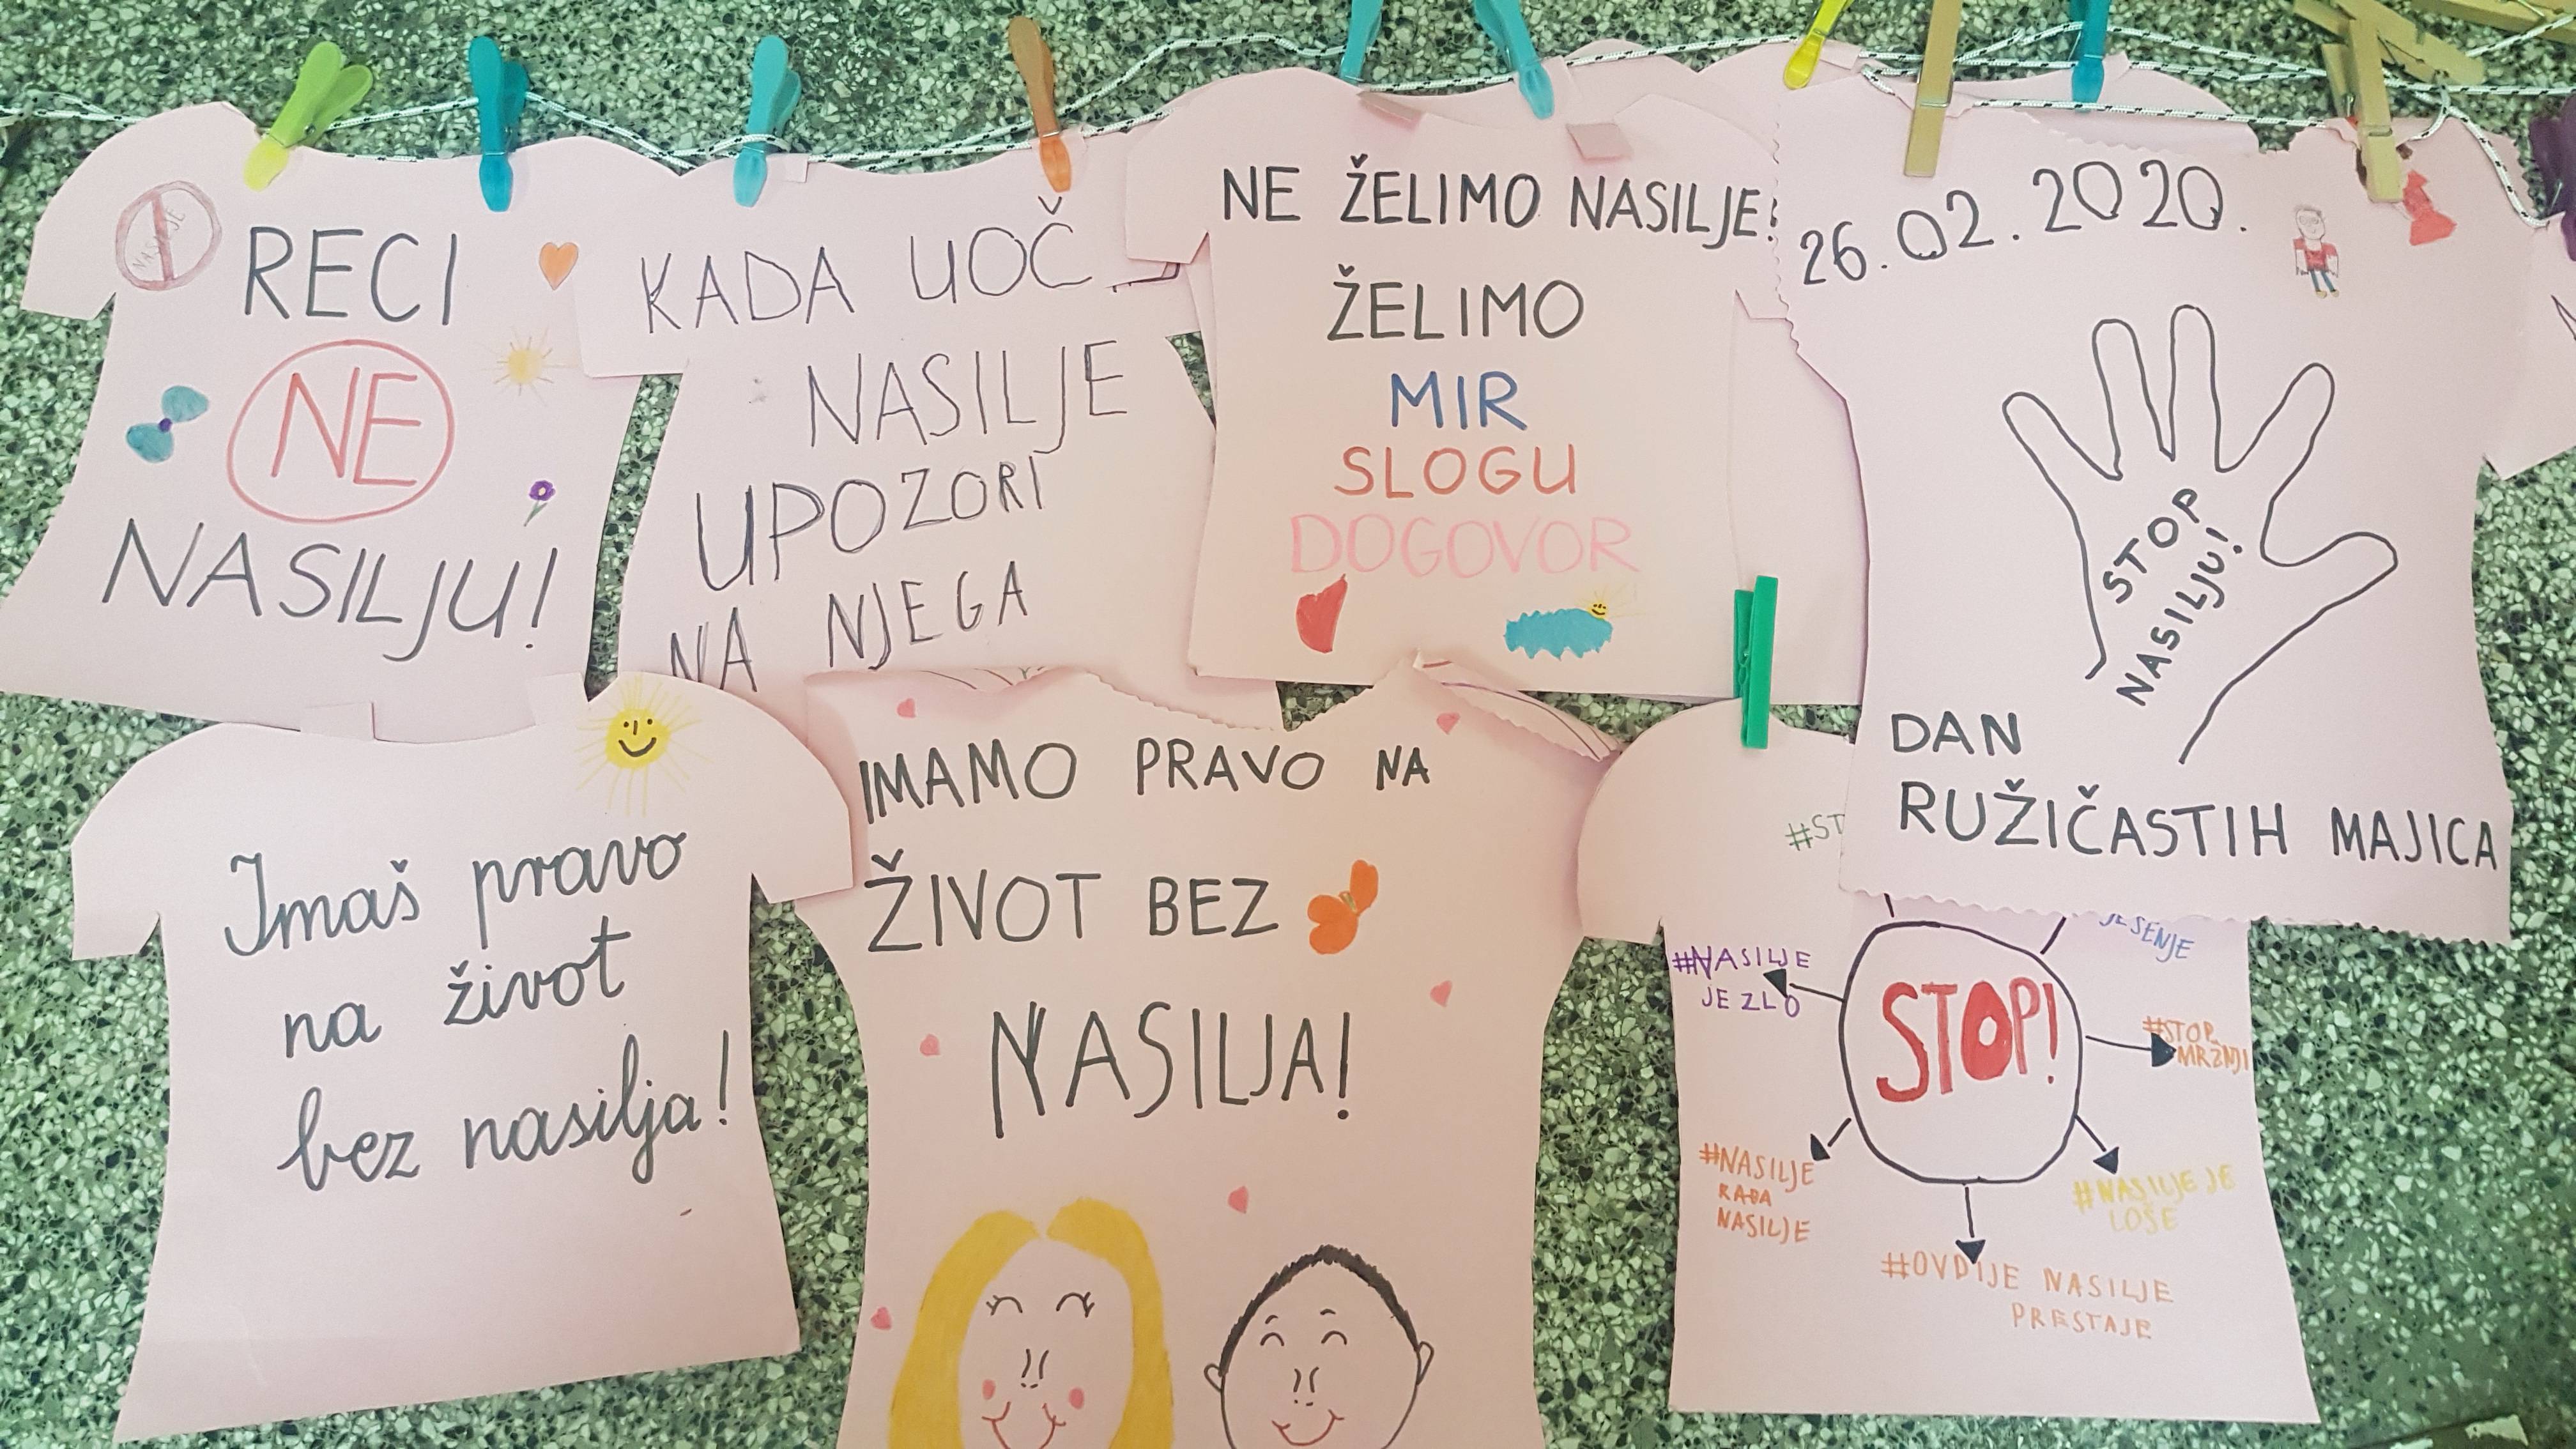 NASILJE
RECI
NE
NASILJU!
KADA UOČ
NASILJE
UPOZORI
NA NJEGA
NE ŽELIMO NASILJE!
ŽELIMO
MIR
SLOGU
DOGOVOR
26.02.2020.
STOP
NASILJU!
DAN
RUŽIČASTIH MAJICA
Imaš pravo
na život
bez nasilja!
IMAMO PRAVO NA
ŽIVOT BEZ
NASILJA!
#ST
JEŠENJE
#NASILJE
JE ZLO
STOP!
#STOP
MRŽNJI
#NASILJE
RAĐA
NASILJE
#NASILJE JE
LOŠE
#OVDIJE NASILJE
PRESTAJE